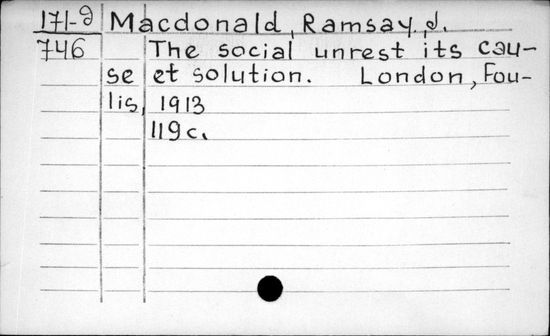 171-д Macdonald, Ramsay, J.
746 The social unrest its cau-
se et solution. London, Fou-
lis, 1913
119 c.